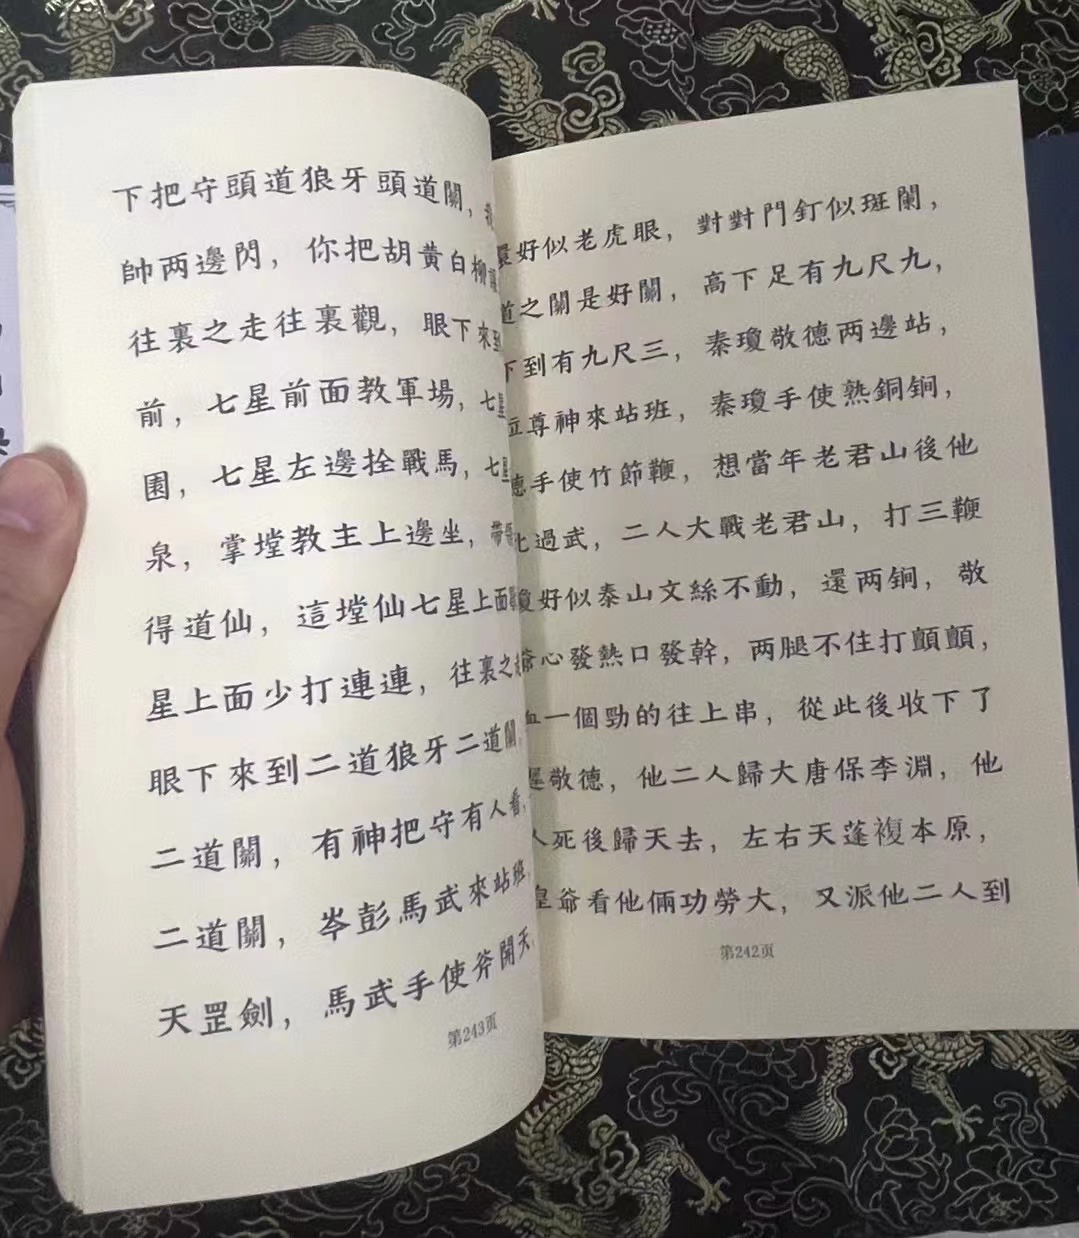 好似老虎眼，對對門釘似斑闌，
道之關是好關，高下足有九尺九，
下到有九尺三，秦瓊敬德两邊站，
尊神來站班，秦瓊手使熟銅锏，
德手使竹節鞭，想當年老君山後他
過武，二人大戰老君山，打三鞭
好似泰山文絲不動，還两锏，敬
爺心發熱口發幹，两腿不住打顫顫，
血一個勁的往上串，從此後收下了
敬德，他二人歸大唐保李淵，他
人死後歸天去，左右天蓬複本原，
皇爺看他倆功勞大，又派他二人到
第242页
下把守頭道狼牙頭道關，
帥两邊閃，你把胡黄白柳
往裏之走往裏觀，眼下來到
前，七星前面教軍場，七星
園，七星左邊拴戰馬，七星
泉，掌墱教主上邊坐，帶
得道仙，這墱仙七星上面
星上面少打連連，往裏之走
眼下來到二道狼牙二道關，
二道關，有神把守有人看，
二道關，岑彭馬武來站班，
天罡劍，馬武手使斧開天，
第243页